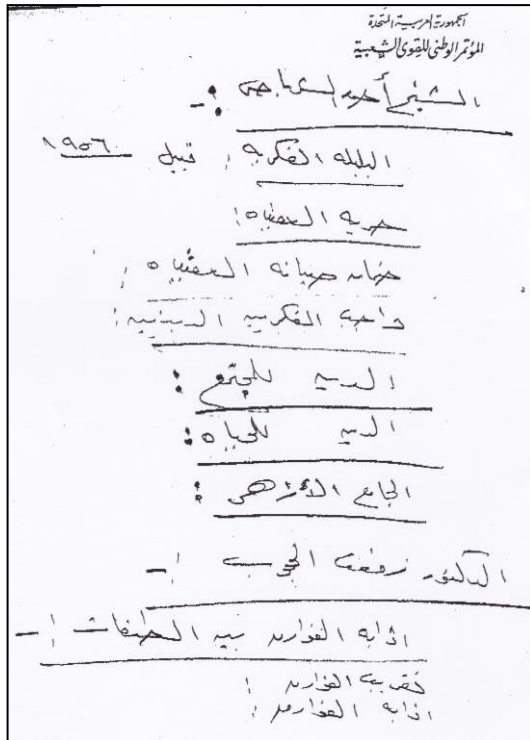 الجمهورية العربية المتحدة
المؤتمر الوطني للقوى الشعبية
الشيخ أحمد الشرباصى :-
البلبله الفكريه : قبيل ١٩٥٦
حريه العقيده :
ضمان صيانه العقيده :
واجب الفكريه الدينيه :
الدين للمجتمع :
الدين للحياه :
الجامع الأزهر :
الدكتور رفعت المحجوب :-
اذابه الفوارق بين الطبقات :-
تقريب الفوارق :
اذابه الفوارق :